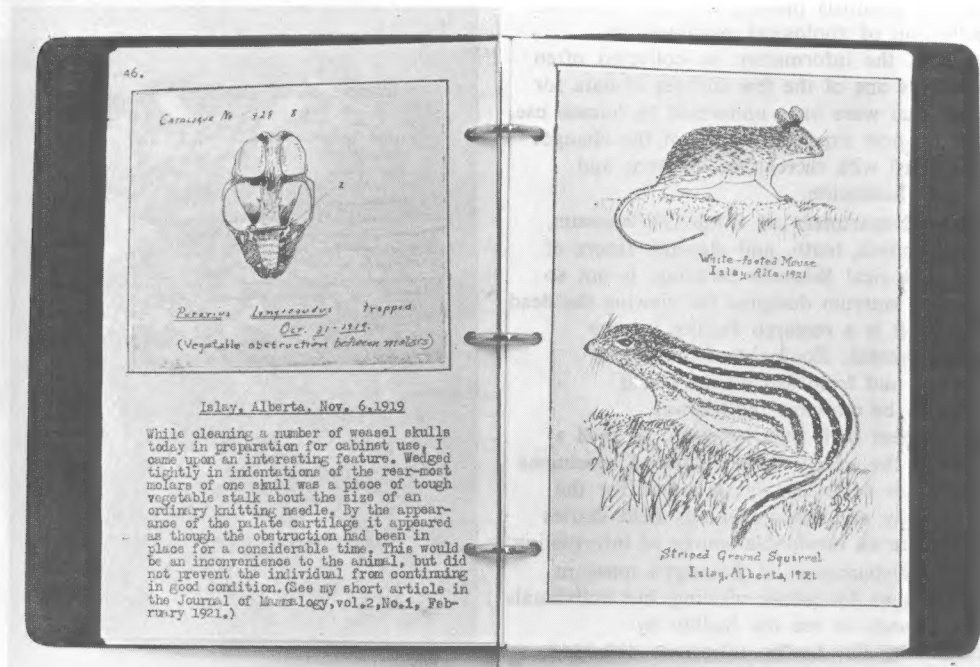 46.
Catalogue No 429 8
2
Putorius Longicaudus trapped
Oct. 21-1919.
(Vegetable obstruction between molars)
Islay, Alberta, Nov. 6.1919
While cleaning a number of weasel skulls
today in preparation for cabinet use, I
came upon an interesting feature. Wedged
tightly in indentations of the rear-most
molars of one skull was a piece of tough
vegetable stalk about the size of an
ordinary knitting needle. By the appear-
ance of the palate cartilage it appeared
as though the obstruction had been in
place for a considerable time. This would
be an inconvenience to the animal, but did
not prevent the individual from continuing
in good condition.(See my short article in
the Journal of Mammalogy,vol.2,No.1, Feb-
ruary 1921.)
White-footed Mouse
Islay, Alta, 1921
Striped Ground Squirrel
Islay, Alberta, 1921